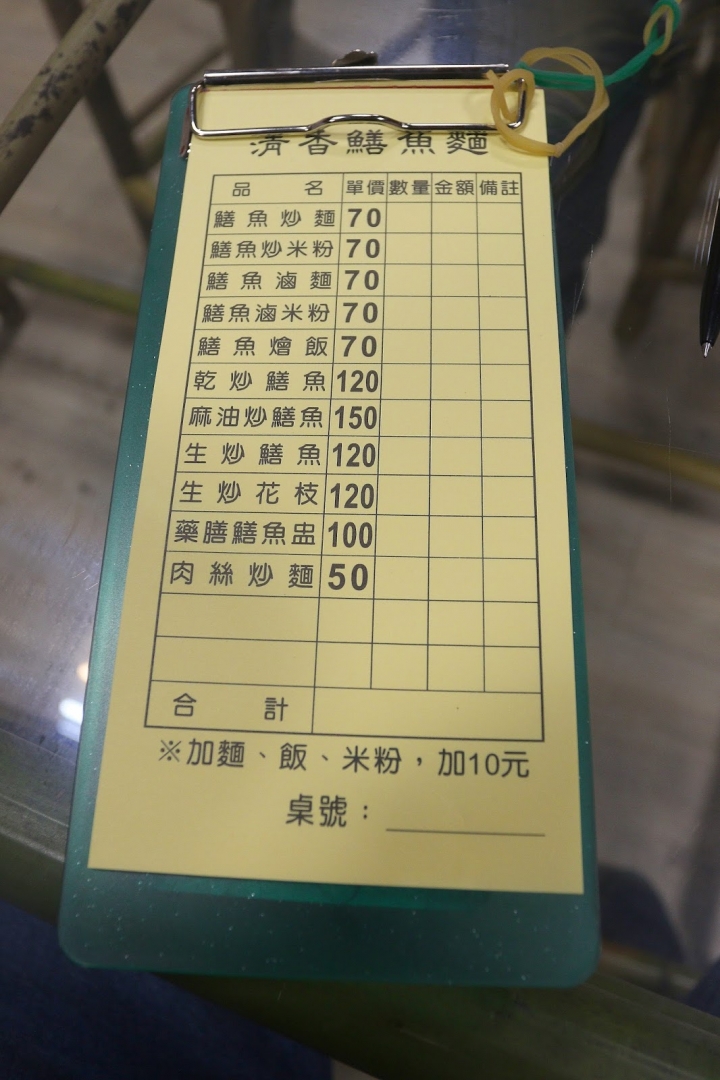 清香鱔魚麵
品名 單價 數量 金額 備註
鱔魚炒麵 70
鱔魚炒米粉 70
鱔魚滷麵 70
鱔魚滷米粉 70
鱔魚燴飯 70
乾炒鱔魚 120
麻油炒鱔魚 150
生炒鱔魚 120
生炒花枝 120
藥膳鱔魚盅 100
肉絲炒麵 50
合計
※加麵、飯、米粉，加10元
桌號：